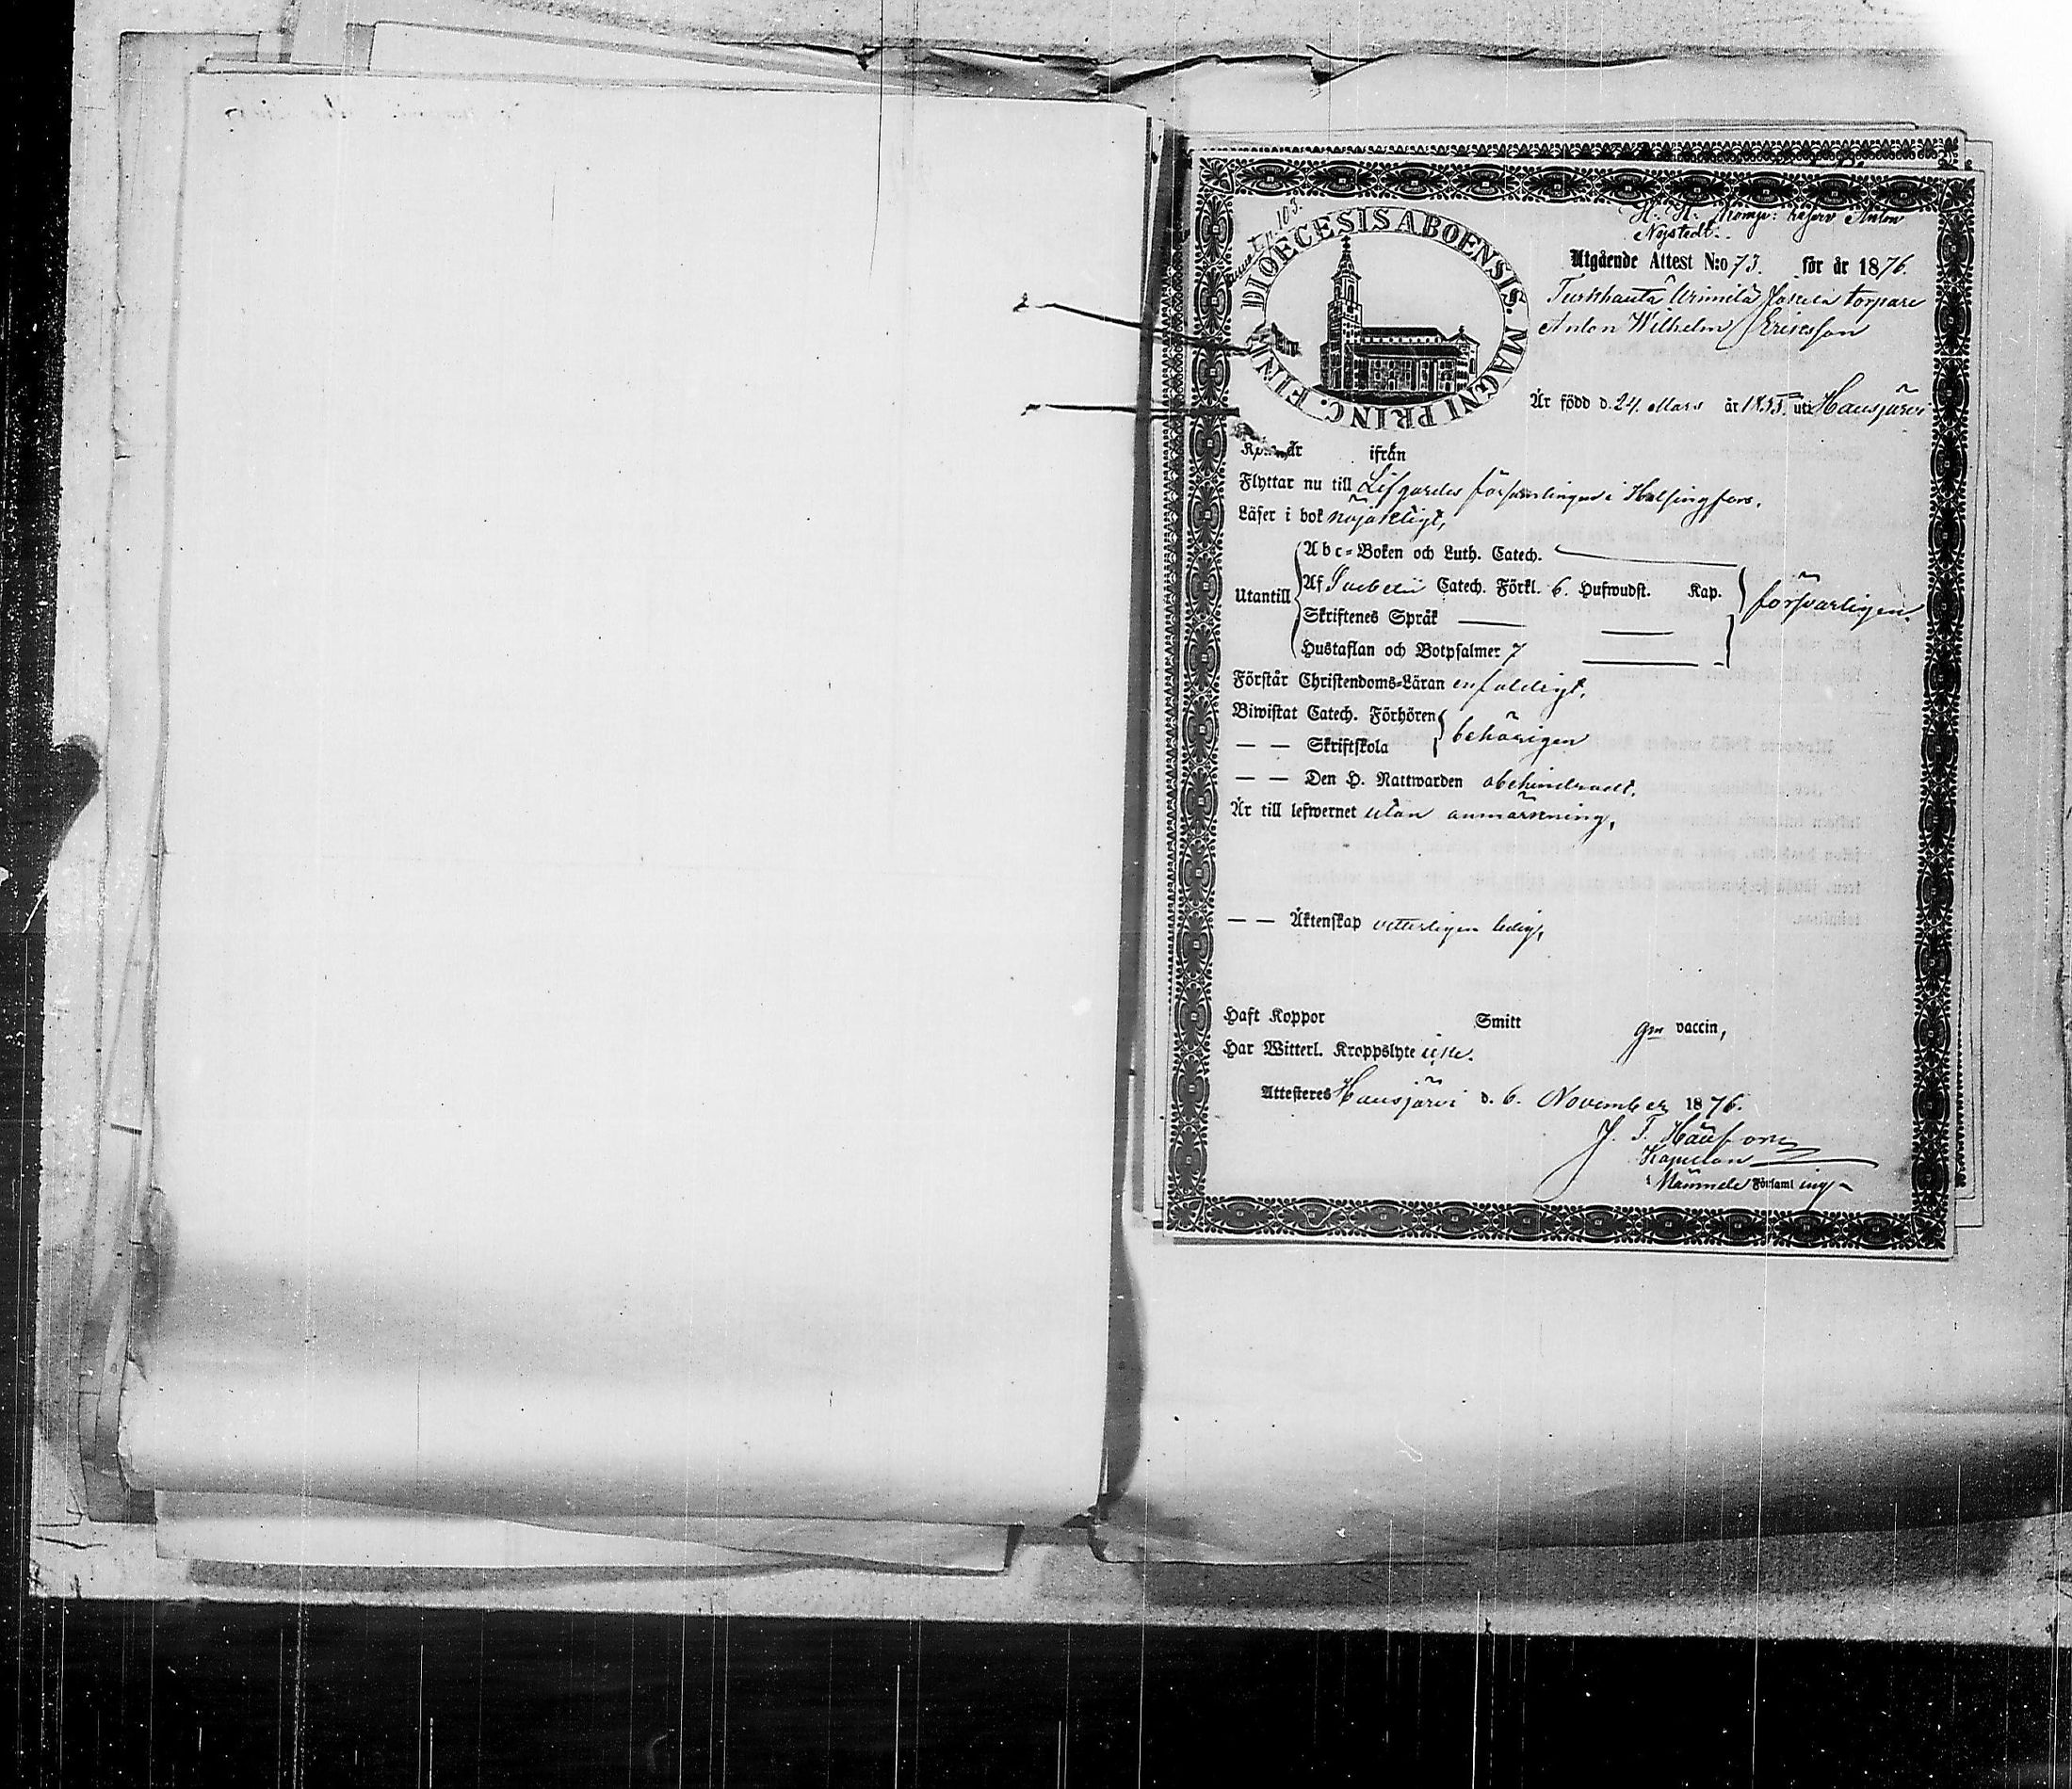 p. 103.
DIOECESIS ABOENSIS. MAGNI PRINC. FINL.
Nystedt.
Utgående Attest N:o 73. för år 1876.
Turkhauta torpare
Anton Wilhelm Ericsson
Är född d. 24. Mars år 1855. uti Hausjärvi
är ifrån
Flyttar nu till Lifgardes församlingen i Helsingfors.
Läser i bok nöjaktigt,
Abc-Boken och Luth. Catech.
Utantill Af Svebelii Catech. Förkl. 6. Hufwudst. Kap. försvarligen.
Skriftenes Språk
Hustaflan och Botpsalmer 7
Förstår Christendoms-Läran enfaldigt,
Biwistat Catech. Förhören behörigen
— — Skriftskola
— — Den H. Nattwarden obehindradt,
Är till lefwernet utan anmärkning,
— — Äktenskap vitterligen ledig,
Haft Koppor Smitt gm vaccin,
Har Witterl. Kroppslyte icke.
Attesteres Hausjärvi d. 6. November 1876.
J. T.
Kapellan
Församling